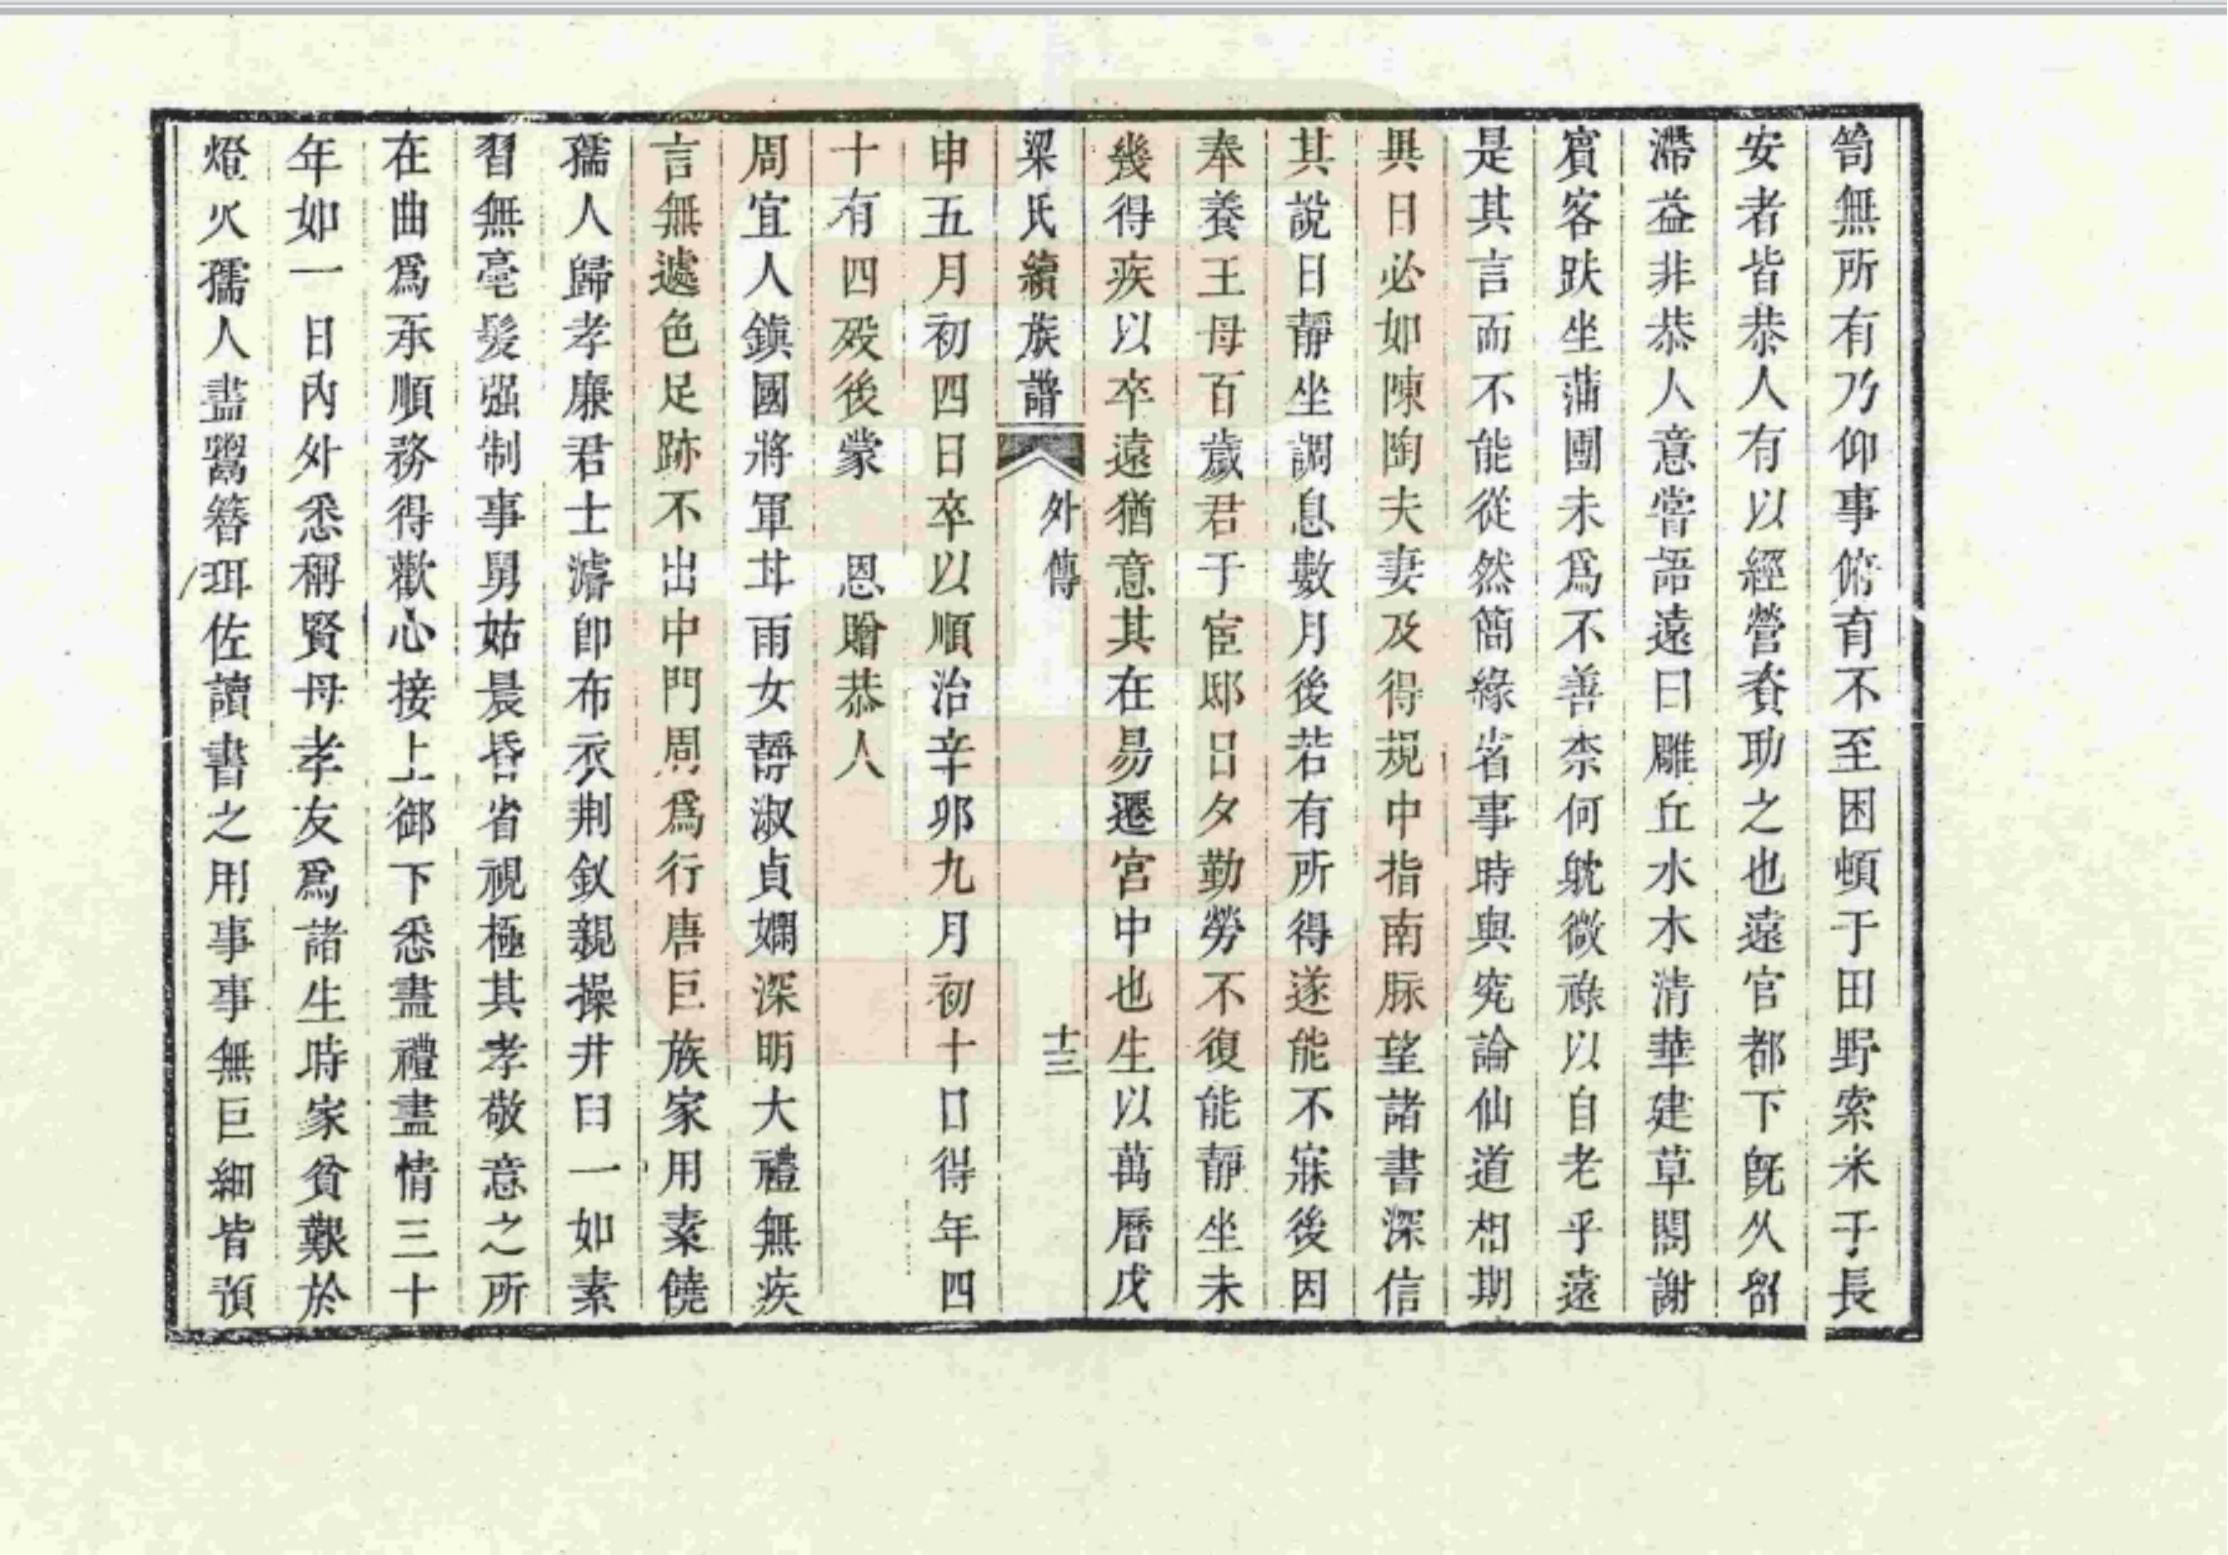 笥無所有乃仰事俯育不至困頓于田野索米于長
安者皆恭人有以經營資助之也遠官都下旣久留
滯益非恭人意嘗語遠曰雕丘水木清華建草閣謝
賓客趺坐蒲團未爲不善柰何躭微祿以自老乎遠
是其言而不能從然簡緣省事時與究論仙道相期
異日必如陳陶夫妻及得規中指南脉望諸書深信
其說日靜坐調息數月後若有所得遂能不寐後因
奉養王母百歲君于宦邸日夕勤勞不復能靜坐未
幾得疾以卒遠猶意其在易遷宮中也生以萬曆戊
梁氏續族譜 外傳 十三
申五月初四日卒以順治辛卯九月初十日得年四
十有四歿後蒙 恩贈恭人
周宜人鎮國將軍芳雨女靜淑貞嫻深明大禮無疾
言無遽色足跡不出中門周爲行唐巨族家用素饒
孺人歸孝廉君士濬卽布衣荆釵親操井臼一如素
習無毫髮强制事舅姑晨昏省視極其孝敬意之所
在曲爲承順務得歡心接上御下悉盡禮盡情三十
年如一日內外悉稱賢母孝友爲諸生時家貧艱於
燈火孺人盡鬻簪珥佐讀書之用事事無巨細皆預